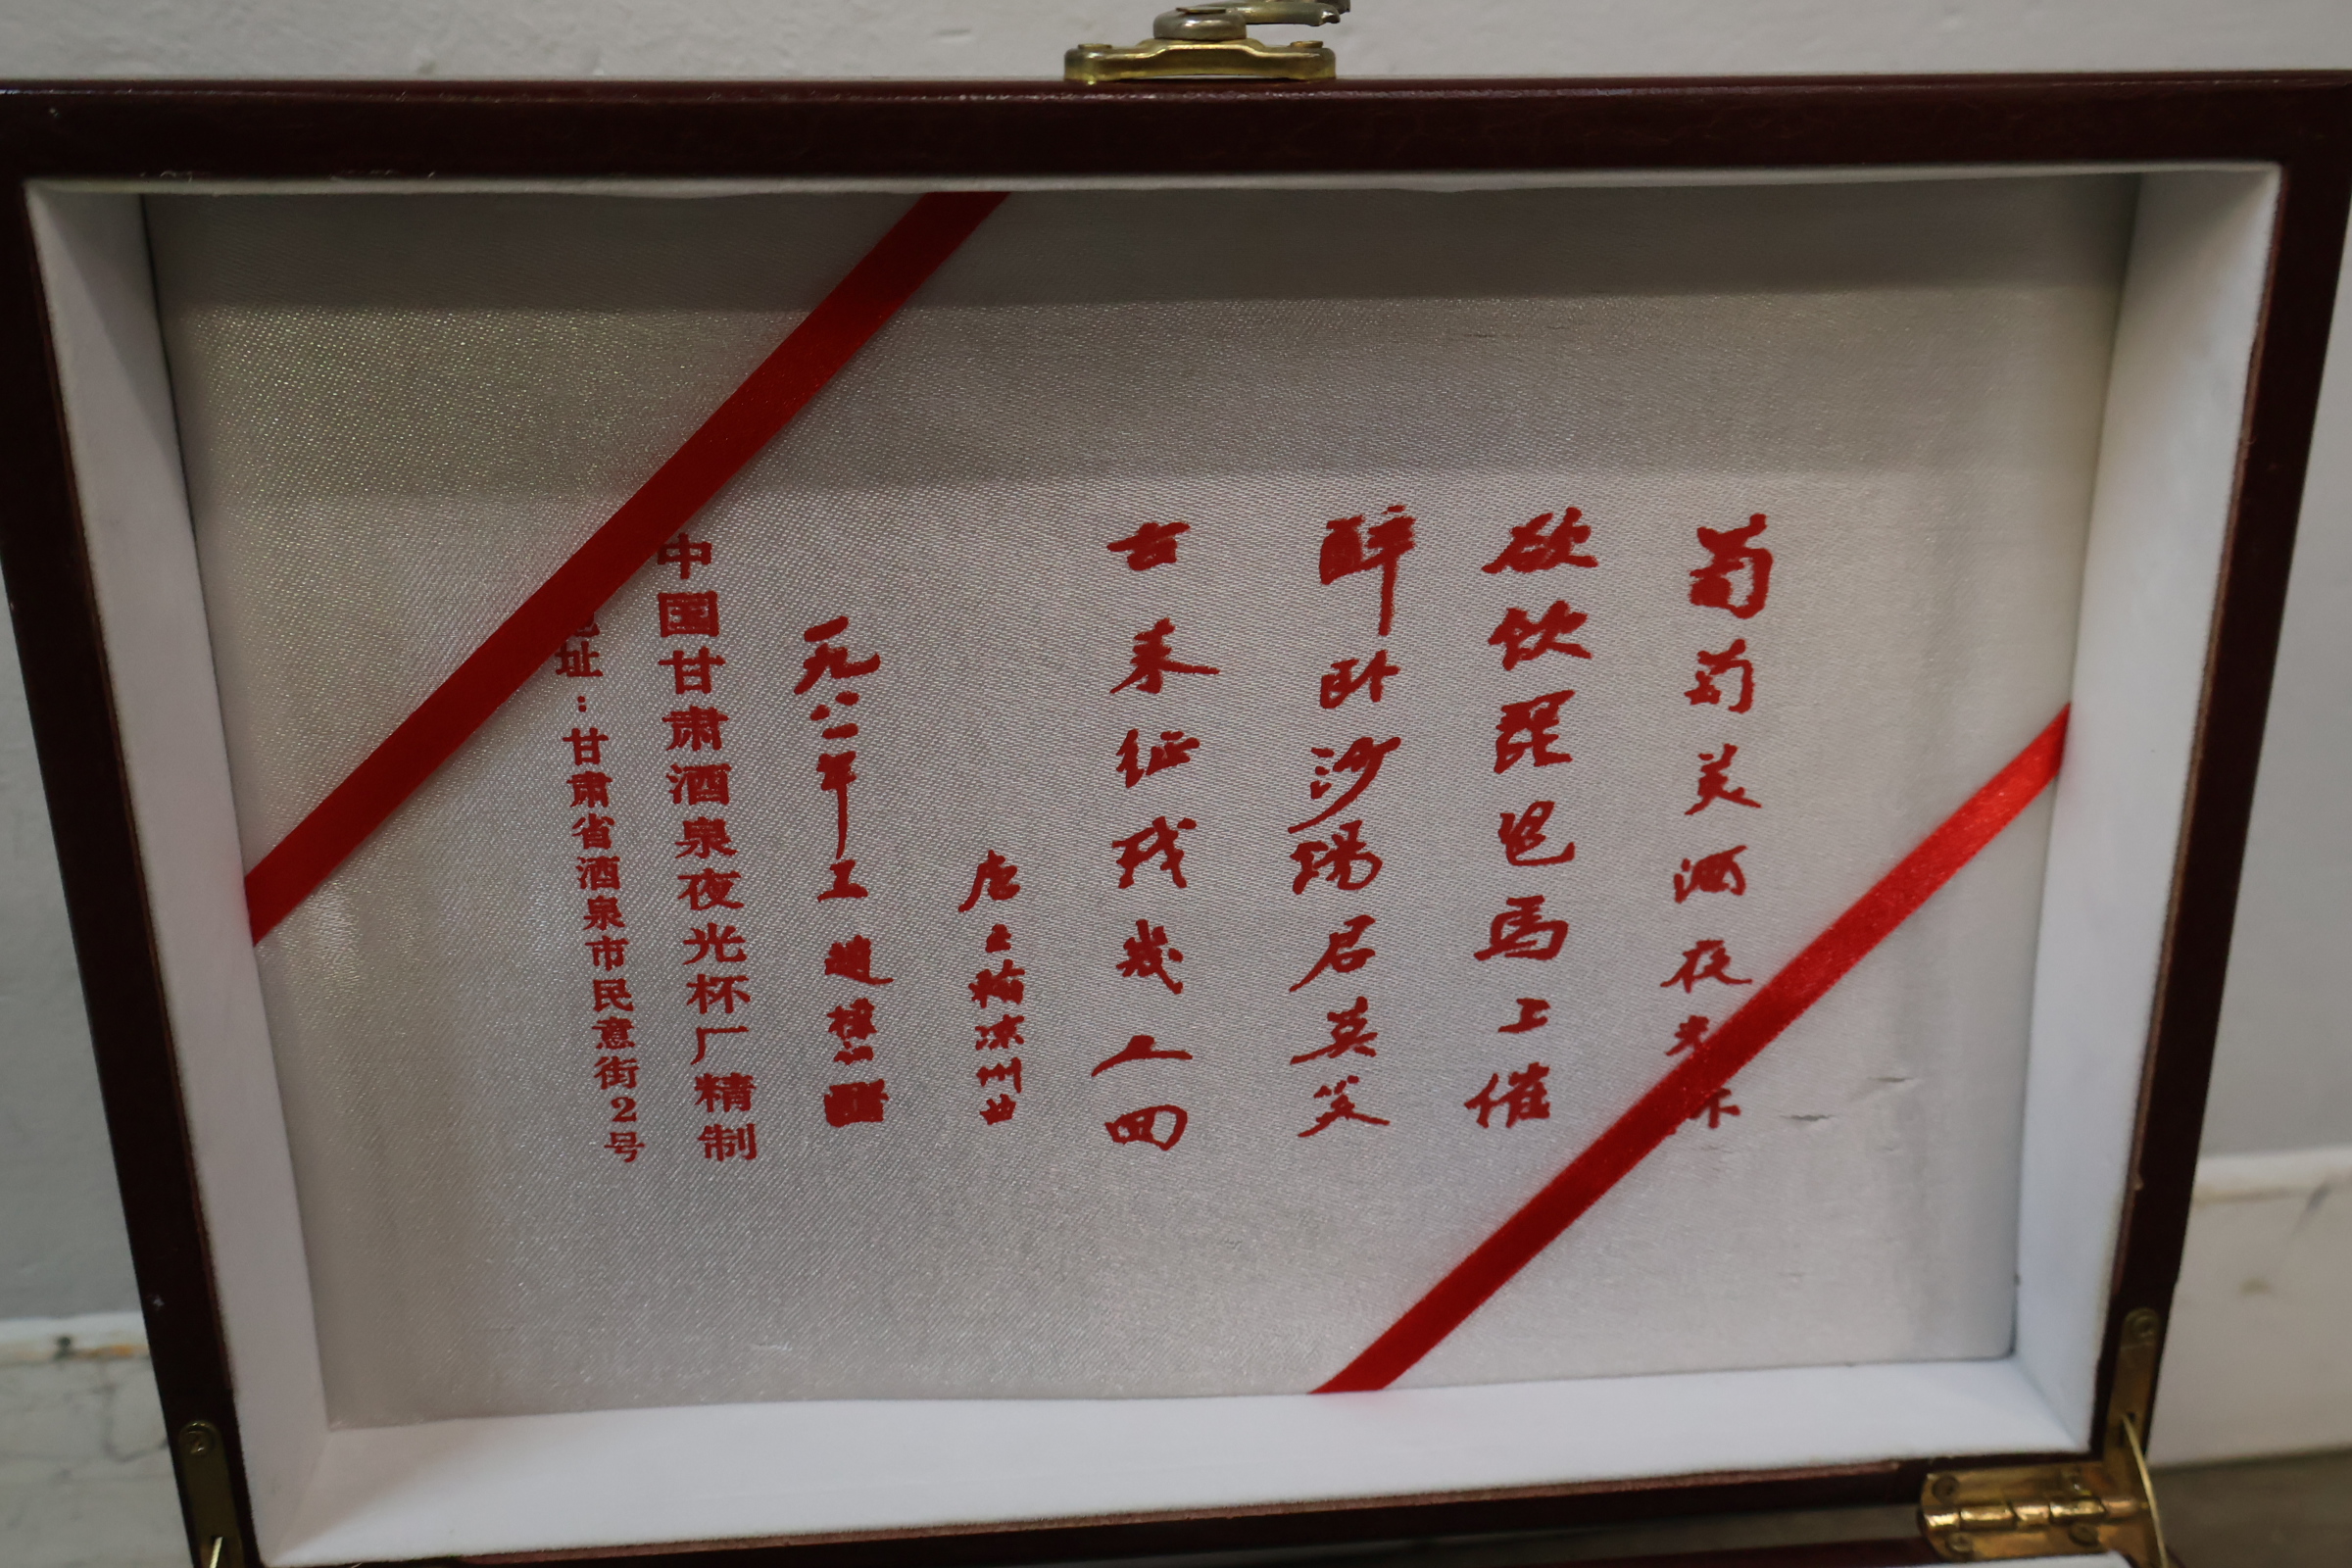 葡萄美酒夜光杯
欲饮琵琶马上催
醉卧沙场君莫笑
古来征战几人回
唐王翰凉州曲
一九八二年 赵朴初
中国甘肃酒泉夜光杯厂精制
地址:甘肃省酒泉市民意街2号